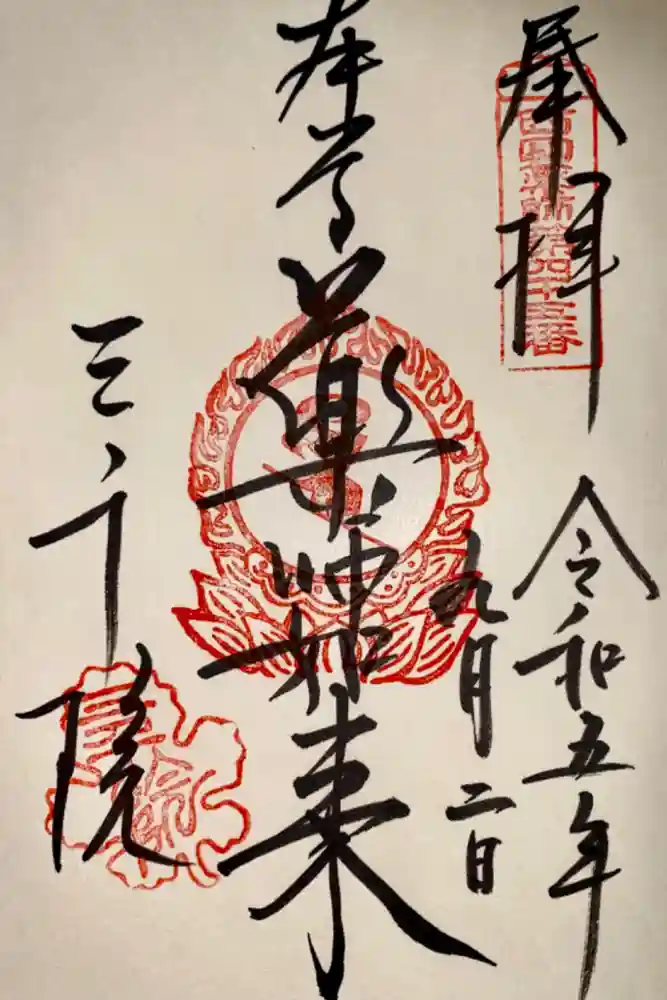 奉拝
西国薬師第四十五番
令和五年
九月二日
本尊
薬師如来
三千院